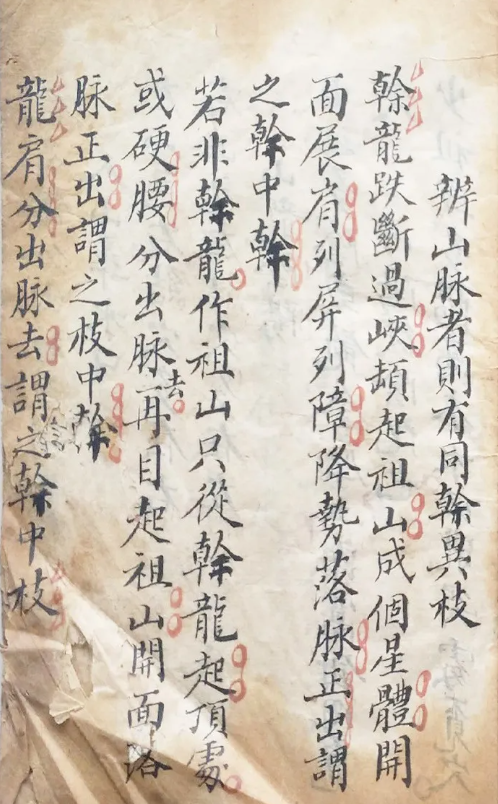 辨山脉者則有同幹異枝
幹龍跌斷過峽頓起祖山成個星體開
面展肩列屏列障降勢落脉正出謂
之幹中幹
若非幹龍作祖山只從幹龍起頂處
或硬腰分出脉去再自起祖山開面落
脉正出謂之枝中幹
龍肩分出脉去謂之幹中枝